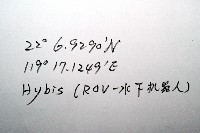 22° 6.9290'N
119° 17.1249'E
Hybis (ROV-水下机器人)